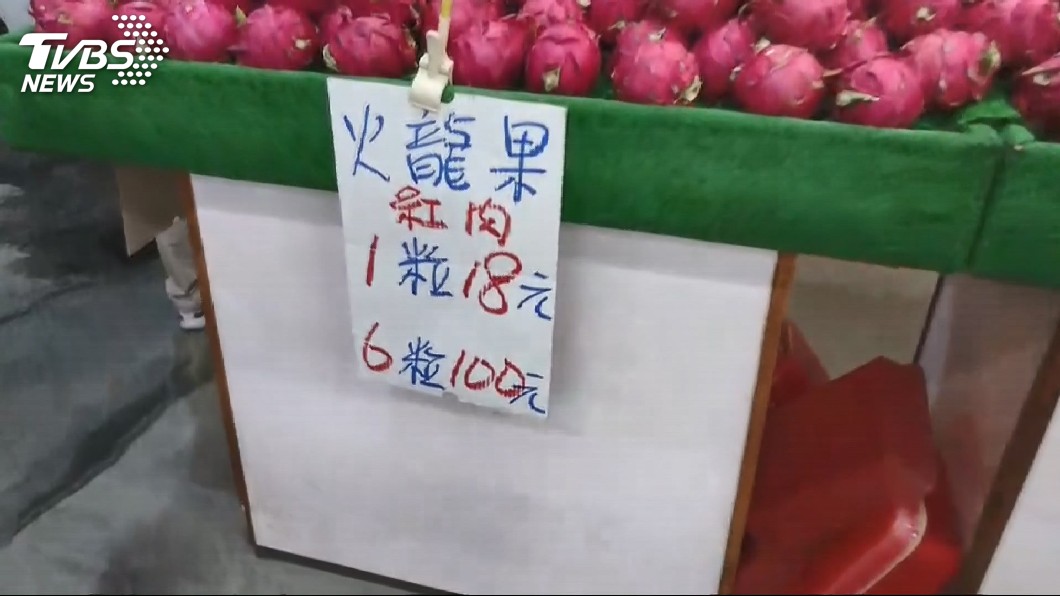 TVBS
NEWS
火龍果
紅肉
1粒18元
6粒100元